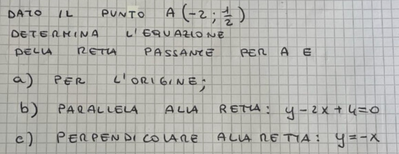 DATO IL PUNTO A(-2; 1/2)
DETERMINA L'EQUAZIONE
DELLA RETTA PASSANTE PER A E
a) PER L'ORIGINE;
b) PARALLELA ALLA RETTA: y-2x+4=0
c) PERPENDICOLARE ALLA RETTA: y=-x